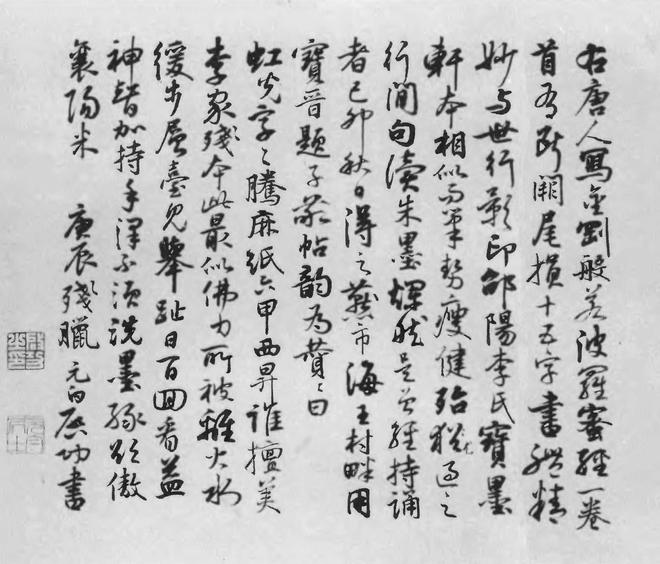 右唐人寫金剛般若波羅蜜經一卷
首有斷闕尾損十五字書體精
妙與世行影印郃陽李氏寶墨
軒本相似而筆勢瘦健殆猶過之
行間句讀朱墨爛然是曾經持誦
者己卯秋日得之燕市海王村畔用
寶晉題子敬帖韻為贊々曰
虹光字々騰麻紙六甲西昇誰擅美
李家殘本此最似佛力所被離火水
緩步層臺見舉趾日百回看益
神智加持手澤不須洗墨緣欲傲
襄陽米 庚辰殘臘 元白啟功書